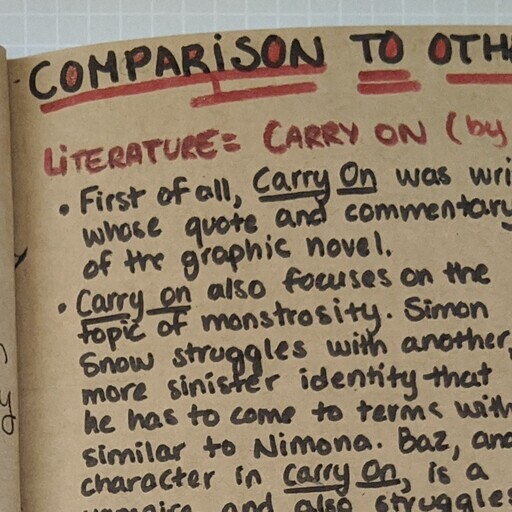 COMPARISON TO OTH
LITERATURE= CARRY ON (by
• First of all, Carry On was wri
whose quote and commentary
of the graphic novel.
• Carry on also focuses on the
topic of monstrosity. Simon
Snow struggles with another,
more sinister identity that
he has to come to terms with
similar to Nimona. Baz, and
character in Carry On, is a
vampire and also struggles